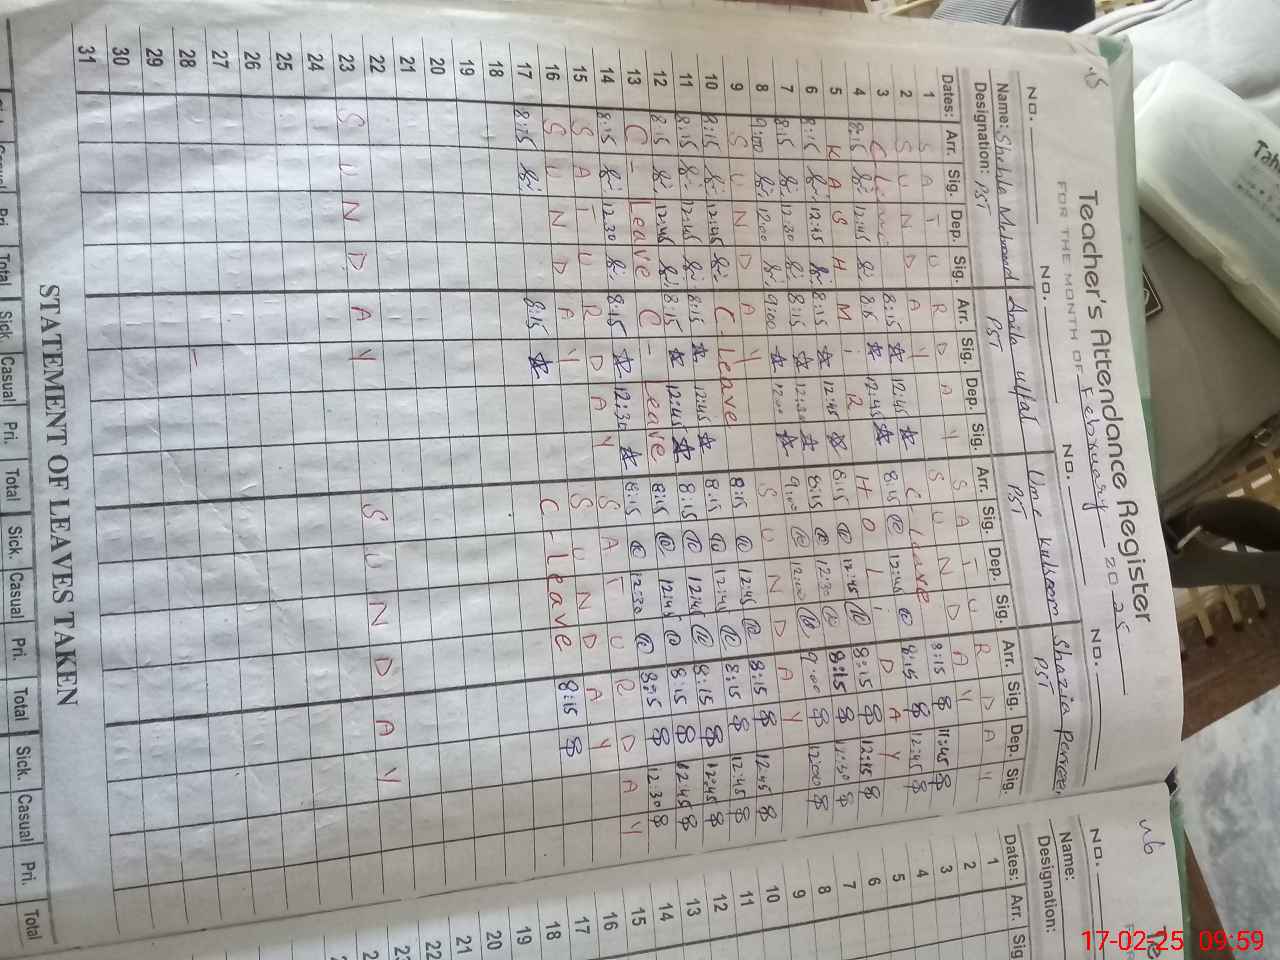 Teacher's Attendance Register
FOR THE MONTH OF February 2025
No. No. No. No.
Name: Shehla Mehmood Anila ulfat Ume kulsoom Shazia Perveen
Designation: PST PST PST PST
Dates: Arr. Sig. Dep. Sig. Arr. Sig. Dep. Sig. Arr. Sig. Dep. Sig. Arr. Sig. Dep. Sig.
1 S A T U R D A Y S A T U R D A Y
2 S U N D A Y S U N D A Y
3 C Leave 8:15 12:45 C Leave 8:15 11:45
4 8:15 12:45 8:15 12:45 8:15 12:45 8:15 12:45
5 K A S H M I R H O L I D A Y
6 8:15 12:45 8:15 12:45 8:15 12:45 8:15 12:15
7 8:15 12:30 8:15 12:30 8:15 12:30 8:15 12:30
8 9:00 12:00 9:00 12:00 9:00 12:00 9:00 12:00
9 S U N D A Y S U N D A Y
10 8:15 12:45 C Leave 8:15 12:45 8:15 12:45
11 8:15 12:45 8:15 12:45 8:15 12:45 8:15 12:45
12 8:15 12:45 8:15 12:45 8:15 12:45 8:15 12:45
13 C - Leave C - Leave 8:15 12:45 8:15 12:45
14 8:15 12:30 8:15 12:30 8:15 12:30 8:15 12:30
15 S A T U R D A Y S A T U R D A Y
16 S U N D A Y S U N D A Y
17 8:15 8:15 C Leave 8:15
18
19
20
21
22
23 S U N D A Y S U N D A Y
24
25
26
27
28
29
30
31
STATEMENT OF LEAVES TAKEN
Casual Pri. Total Sick. Casual Pri. Total Sick. Casual Pri. Total Sick. Casual Pri. Total
No.
Name:
Designation:
Dates: Arr. Sig
1
2
3
4
5
6
7
8
9
10
11
12
13
14
15
16
17
18
19
20
21
22
17-02-25 09:59